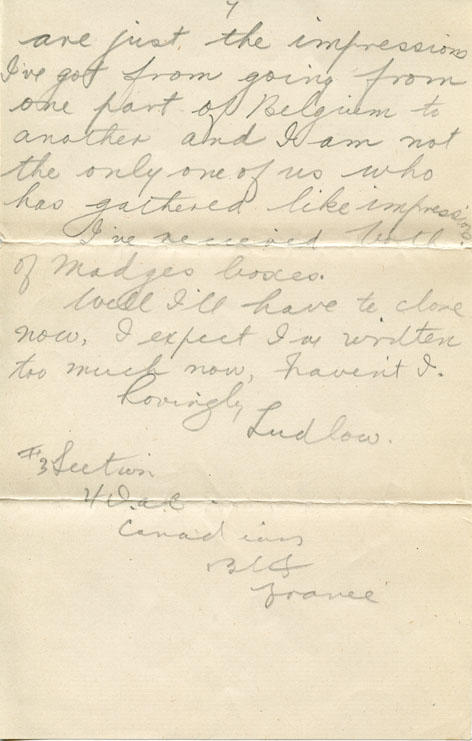 7
are just the impressions
I've got from going from
one part of Belgium to
another and I am not
the only one of us who
has gathered like impressions.
I've received both
of Madges boxes.
Well I'll have to close
now, I expect I've written
too much now, haven't I.
Lovingly,
Ludlow.
#3 Section
4 D.a.C
Canadians
BEF
France